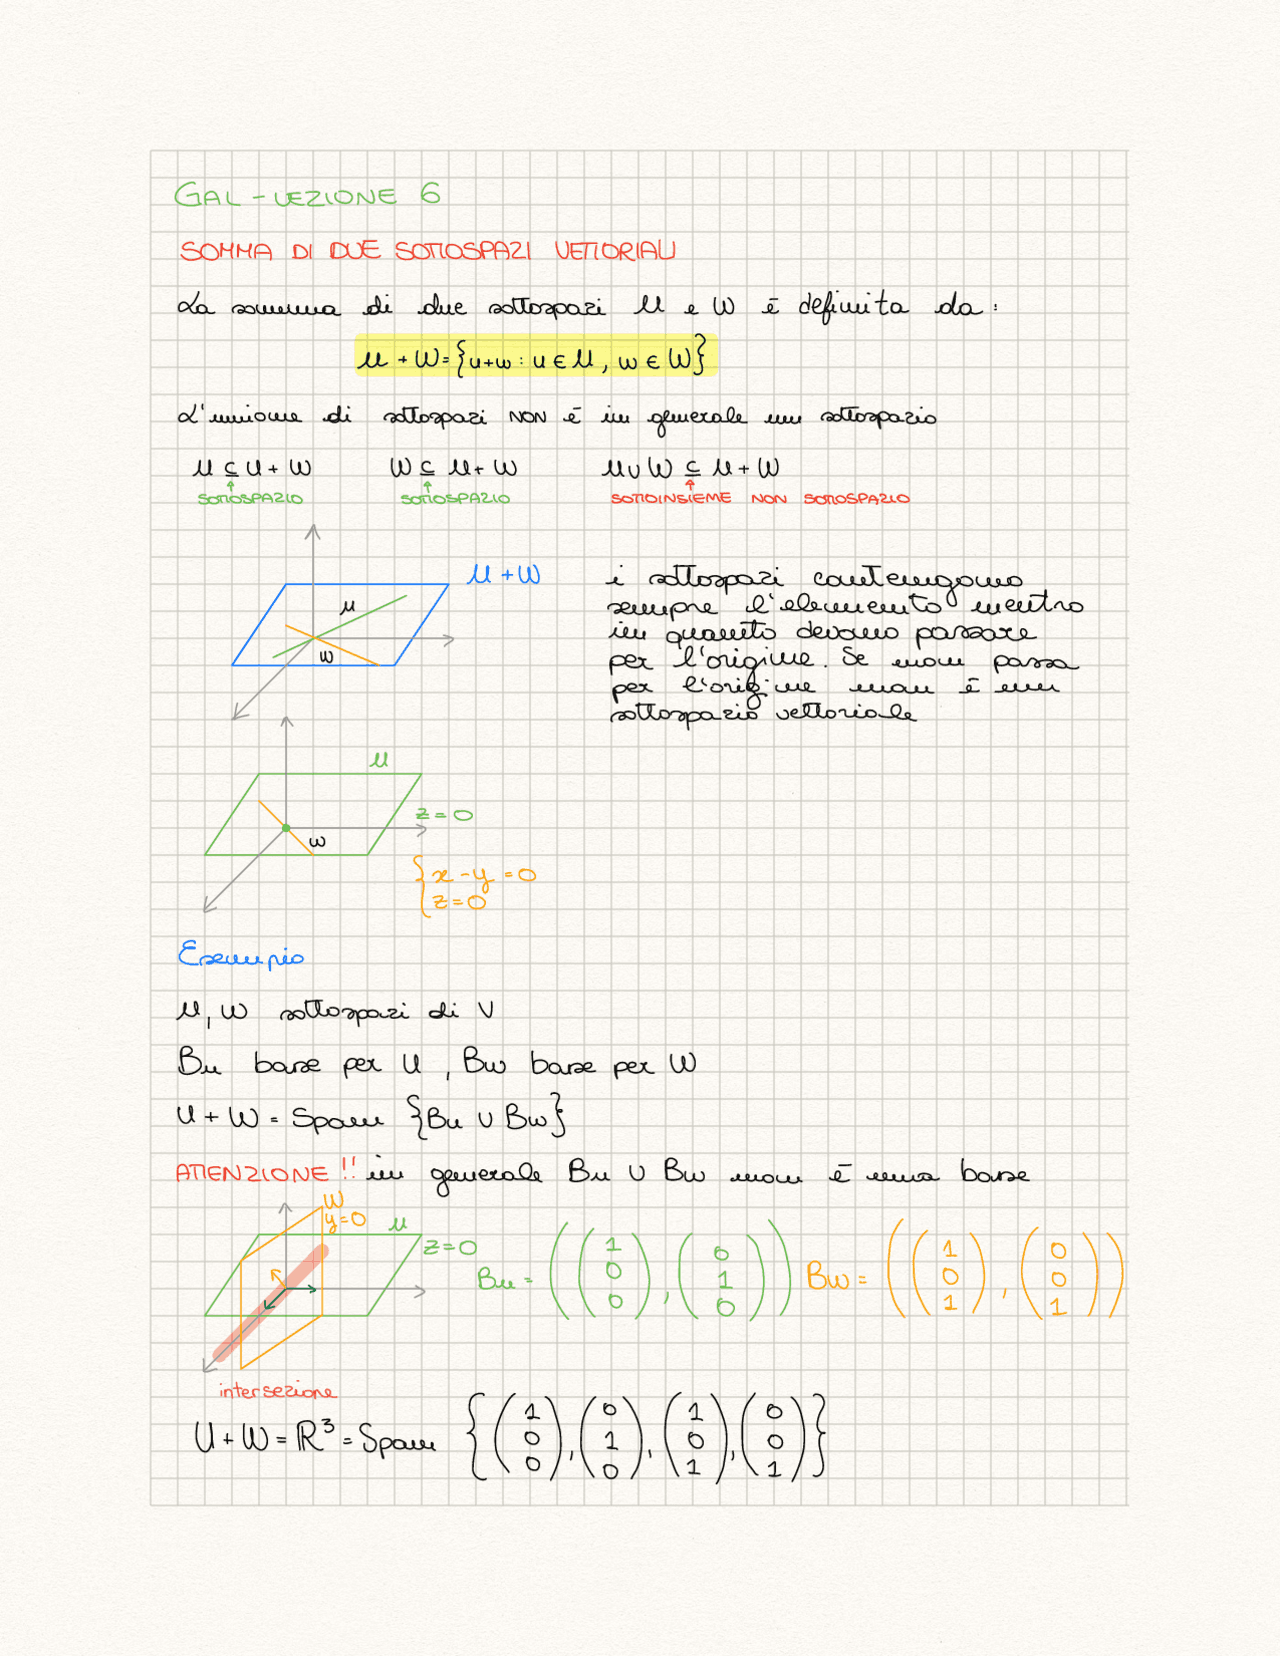 GAL - LEZIONE 6
SOMMA DI DUE SOTTOSPAZI VETTORIALI
La somma di due sottospazi U e W è definita da:
U + W = {u+w : u ∈ U, w ∈ W}
L'unione di sottospazi NON è in generale un sottospazio
U ⊆ U + W W ⊆ U + W U ∪ W ⊆ U + W
SOTTOSPAZIO SOTTOSPAZIO SOTTOINSIEME NON SOTTOSPAZIO
U + W
U
W
i sottospazi contengono
sempre l'elemento neutro
in quanto devono passare
per l'origine. Se non passa
per l'origine non è un
sottospazio vettoriale
U
z = 0
W
{ x - y = 0
z = 0
Esempio
U, W sottospazi di V
Bu base per U, Bw base per W
U + W = Span {Bu ∪ Bw}
ATTENZIONE!! in generale Bu ∪ Bw non è una base
W
y = 0
U
z = 0
Bu = ((1 0 0), (0 1 0)) Bw = ((1 0 1), (0 0 1))
intersezione
U + W = ℝ³ = Span {(1 0 0), (0 1 0), (1 0 1), (0 0 1)}